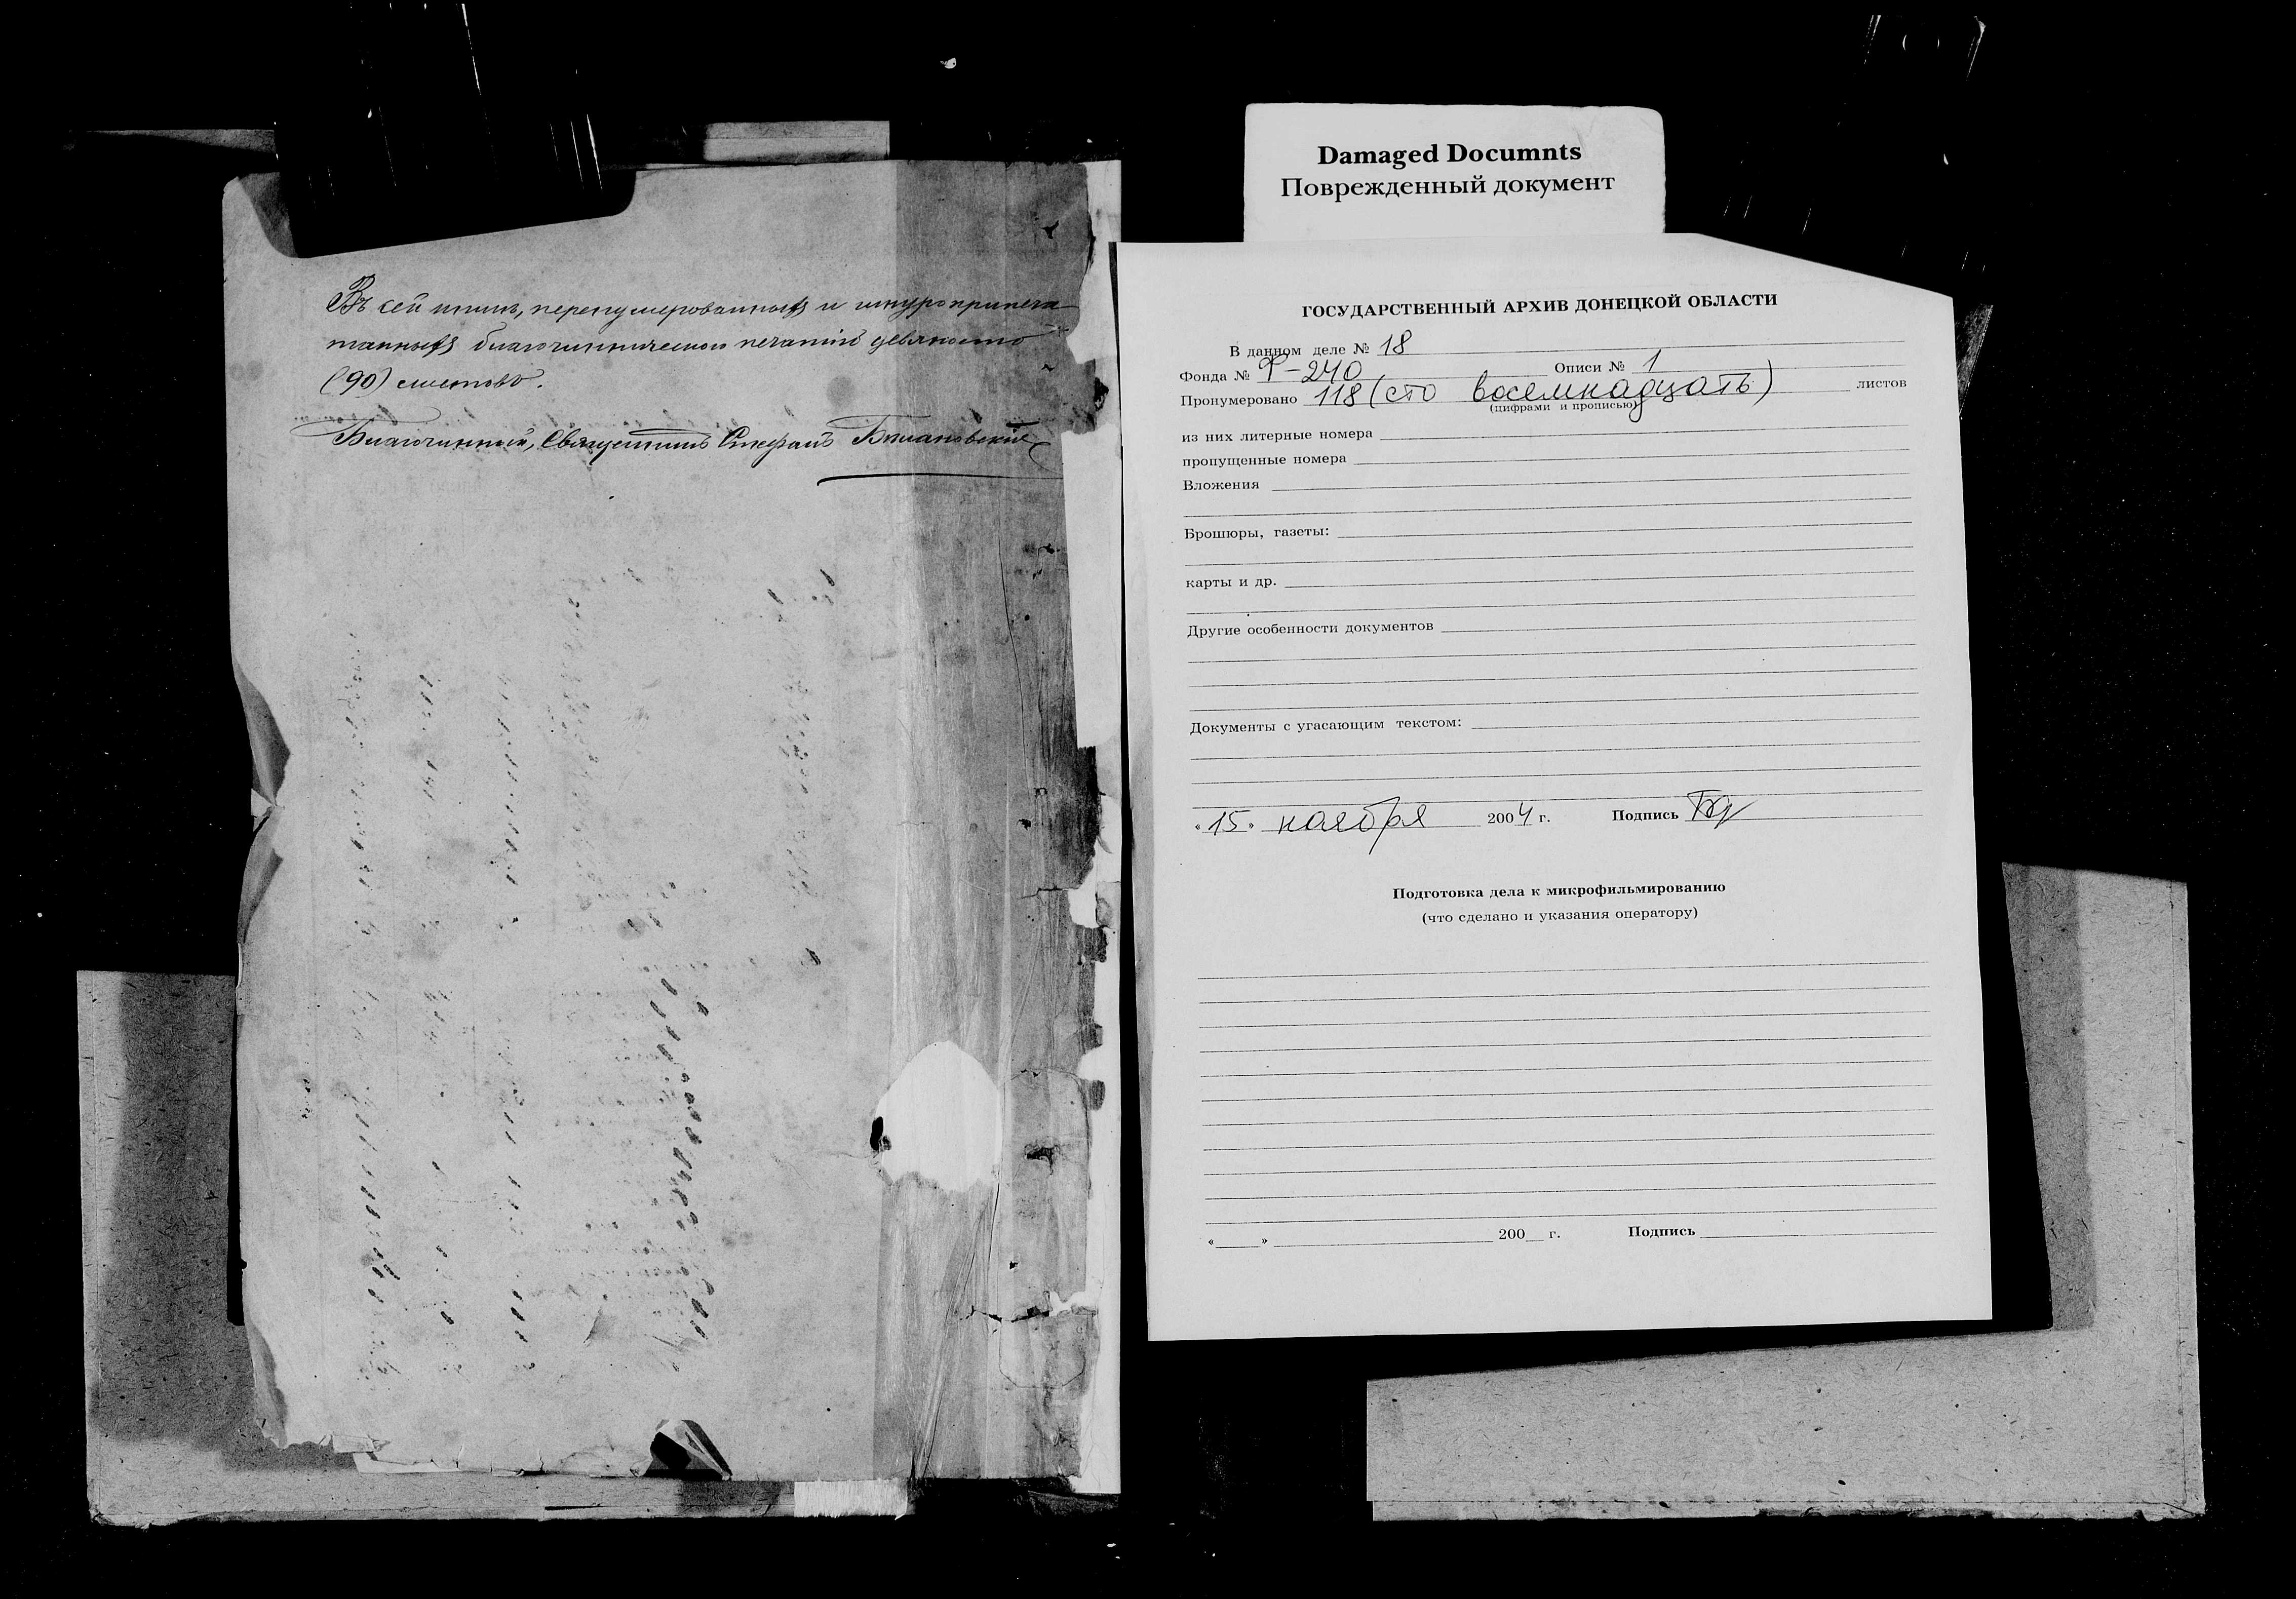 Въ сей книгѣ, перенумерованныхъ и шнуроприпеча-
танныхъ благочинническою печатію девяносто
(90) листовъ.
Благочинный, Священникъ Стефанъ
Damaged Documnts
Поврежденный документ
ГОСУДАРСТВЕННЫЙ АРХИВ ДОНЕЦКОЙ ОБЛАСТИ
В данном деле № 18
Фонда № Ф-240 Описи № 1
Пронумеровано 118 (сто восемнадцать) листов
(цифрами и прописью)
из них литерные номера
пропущенные номера
Вложения
Брошюры, газеты:
карты и др.
Другие особенности документов
Документы с угасающим текстом:
«15» ноября 2004 г. Подпись
Подготовка дела к микрофильмированию
(что сделано и указания оператору)
« » 200 г. Подпись